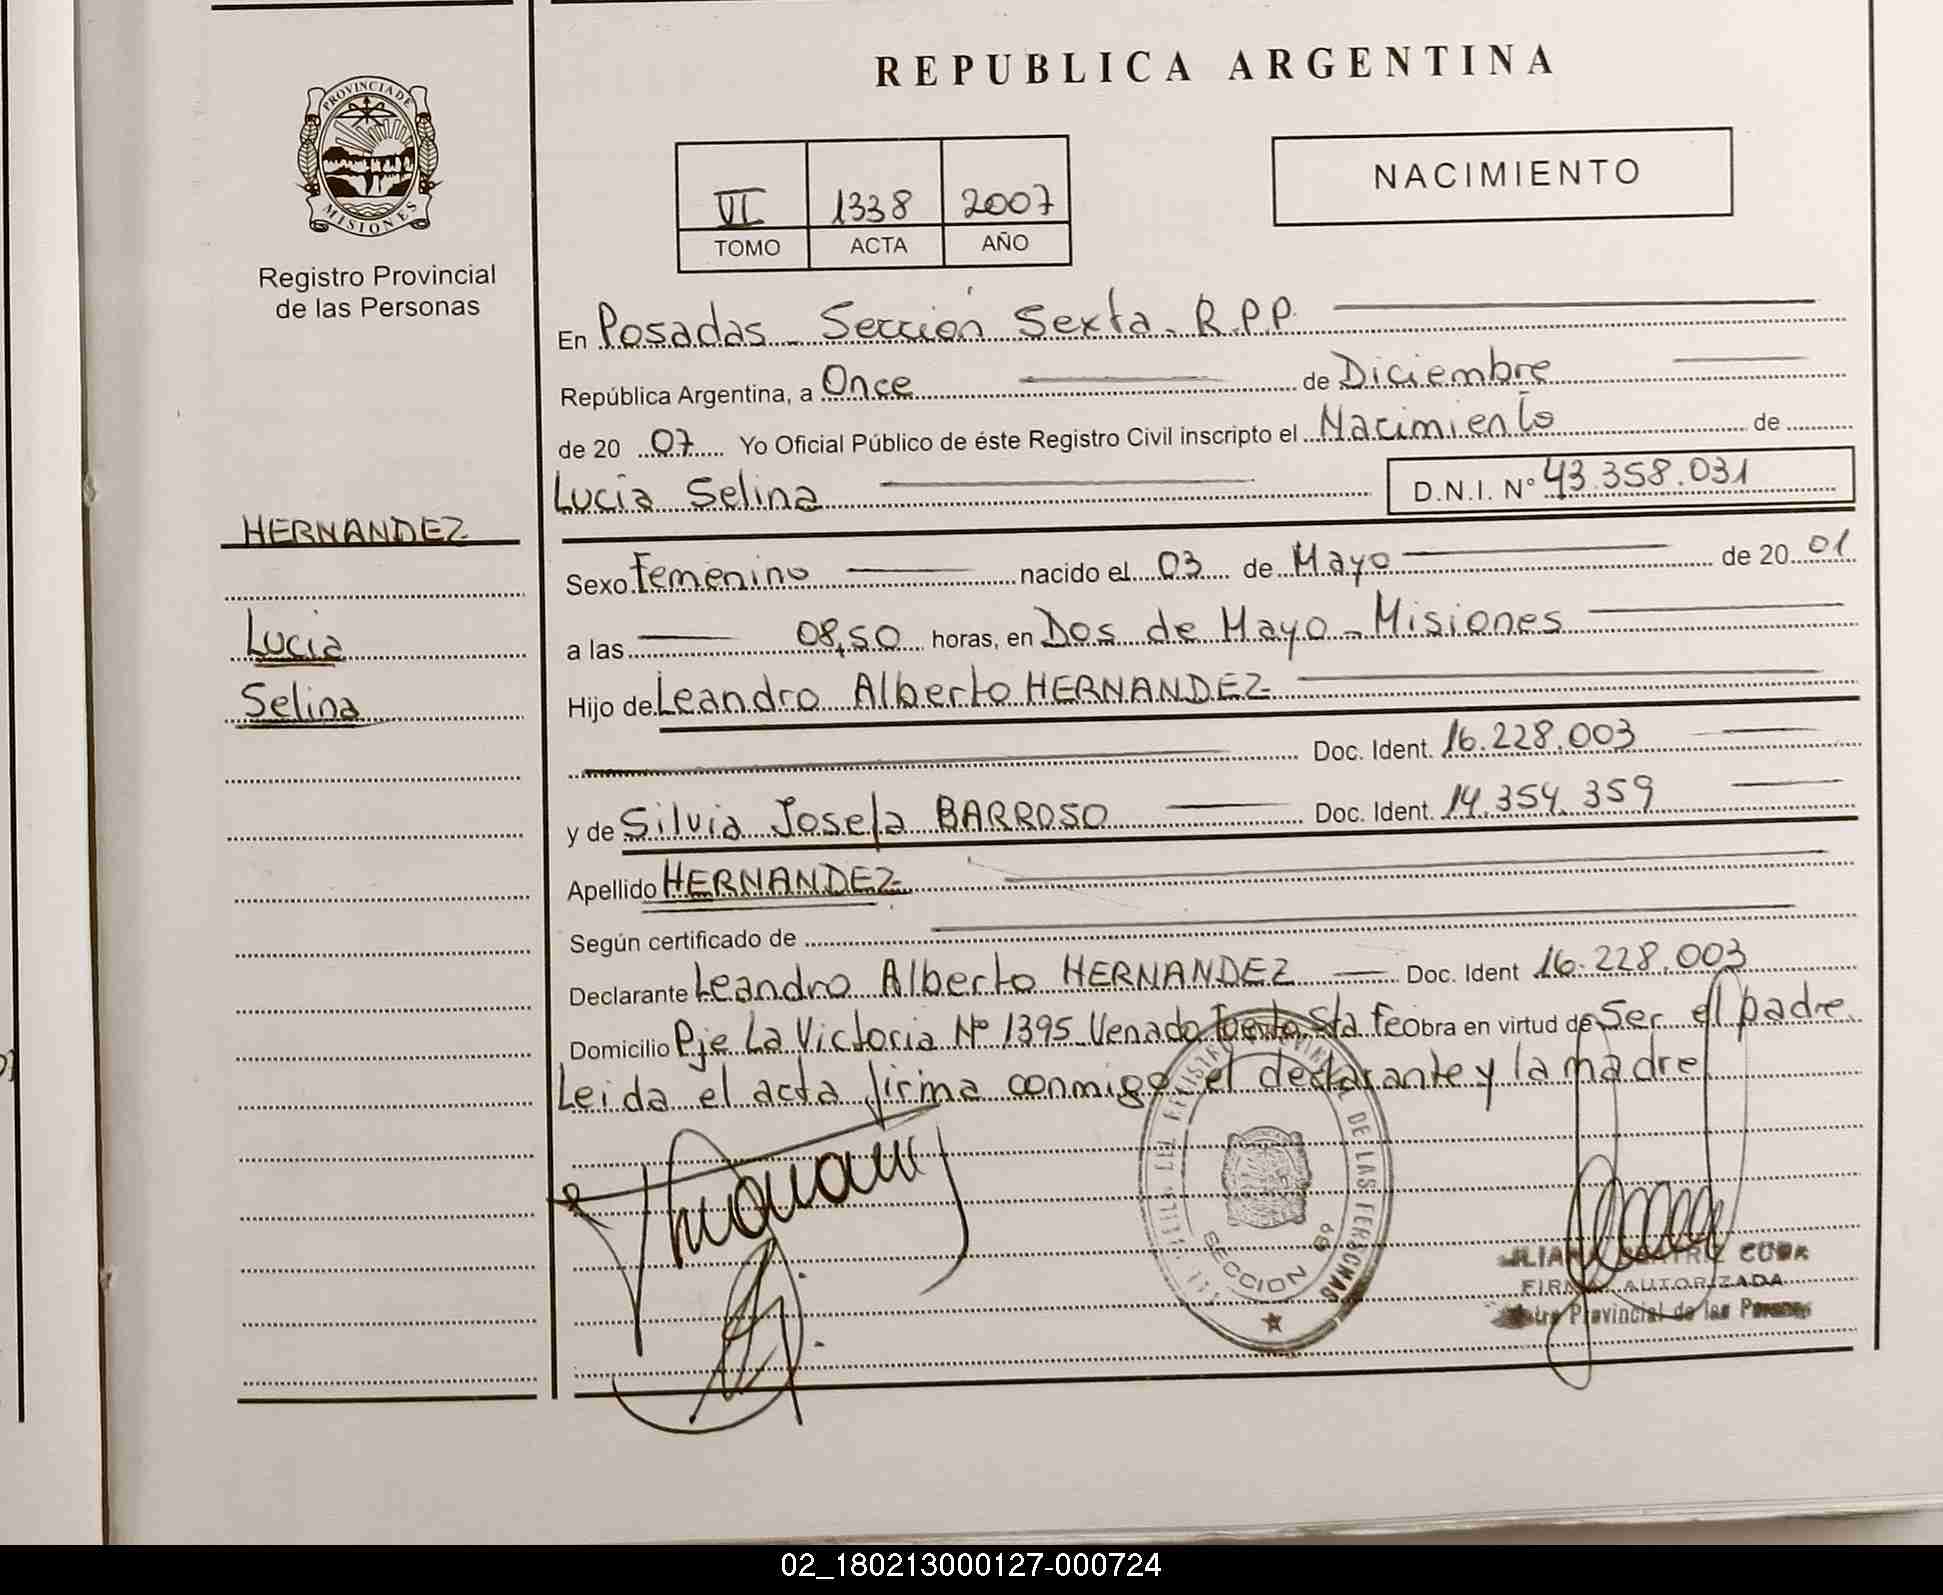 REPUBLICA ARGENTINA
PROVINCIA DE
MISIONES
Registro Provincial
de las Personas
VI 1338 2007
TOMO ACTA AÑO
NACIMIENTO
En Posadas - Sección Sexta. R.P.P.
República Argentina, a Once de Diciembre
de 20 07 Yo Oficial Público de éste Registro Civil inscripto el Nacimiento de
Lucia Selina D.N.I. N° 43.358.031
HERNANDEZ
Lucia
Selina
Sexo Femenino nacido el 03 de Mayo de 20 01
a las 08,50 horas, en Dos de Mayo - Misiones
Hijo de Leandro Alberto HERNANDEZ
Doc. Ident. 16.228.003
y de Silvia Josefa BARROSO Doc. Ident. 14.354.359
Apellido HERNANDEZ
Según certificado de
Declarante Leandro Alberto HERNANDEZ Doc. Ident 16.228.003
Domicilio Pje La Victoria Nº 1395 Venado Tuerto Sta Fe Obra en virtud de Ser el padre
Leida el acta firma conmigo el declarante y la madre
DE LAS PERSONAS
SECCION 6ª
FIRMA AUTORIZADA
Provincial de las Personas
02_180213000127-000724